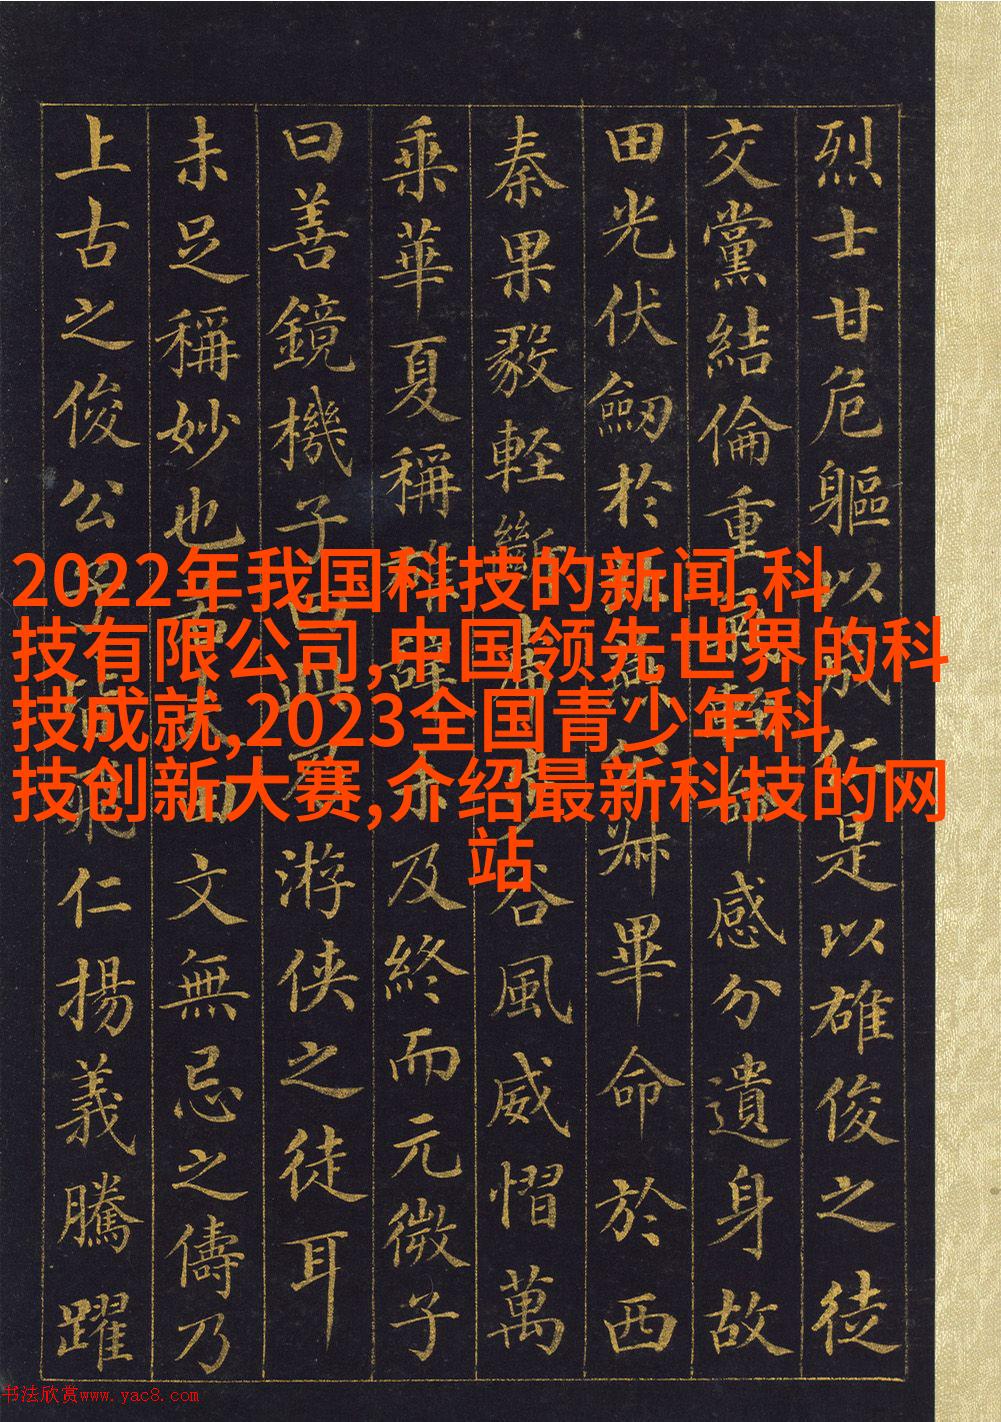 烈士甘危軀以成仁是以雄俊之徒
交黨結倫重感分遺身故
田光伏劔於公叔畢命於西
秦果毅輕斷谷風威慴萬
乘華夏稱及終而元微子
曰善鏡機子曰游俠之徒耳
未足稱妙也文無忌之儔乃
上古之俊公仁揚義騰躍
2022年我国科技的新闻,科
技有限公司,中国领先世界的科
技成就,2023全国青少年科
技创新大赛,介绍最新科技的网
站
书法欣赏www.yac8.com